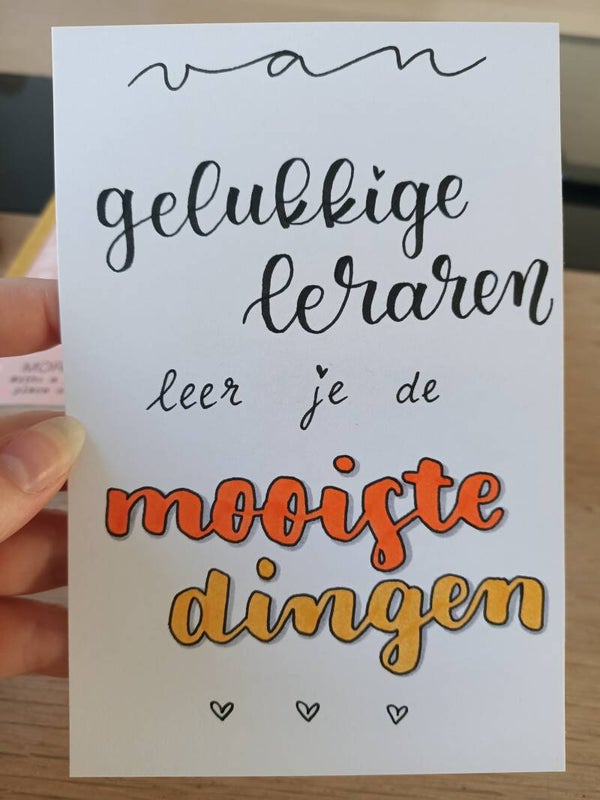 van
gelukkige
leraren
leer je de
mooiste
dingen